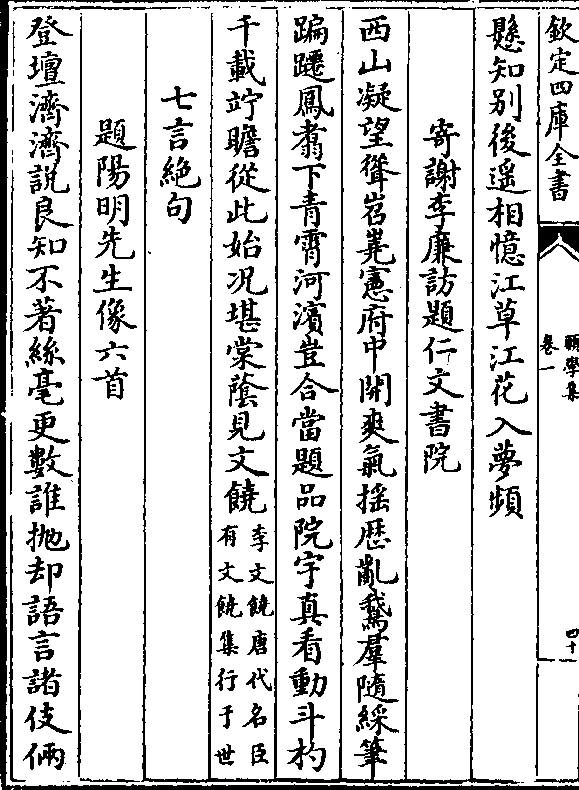 欽定四庫全書
願學集
卷一
四十
懸知别後遥相憶江草江花入夢頻
寄謝李廉訪題仁文書院
西山凝望聳岧嶤憲府中開爽氣揺歴亂鵞羣隨綵筆
蹁躚鳳翥下青霄河濱豈合當題品院宇真看動斗杓
千載竚瞻從此始况堪棠蔭見文饒李文饒唐代名臣
有文饒集行于世
七言絶句
題陽明先生像六首
登壇濟濟説良知不著絲毫更數誰抛却語言諸伎倆